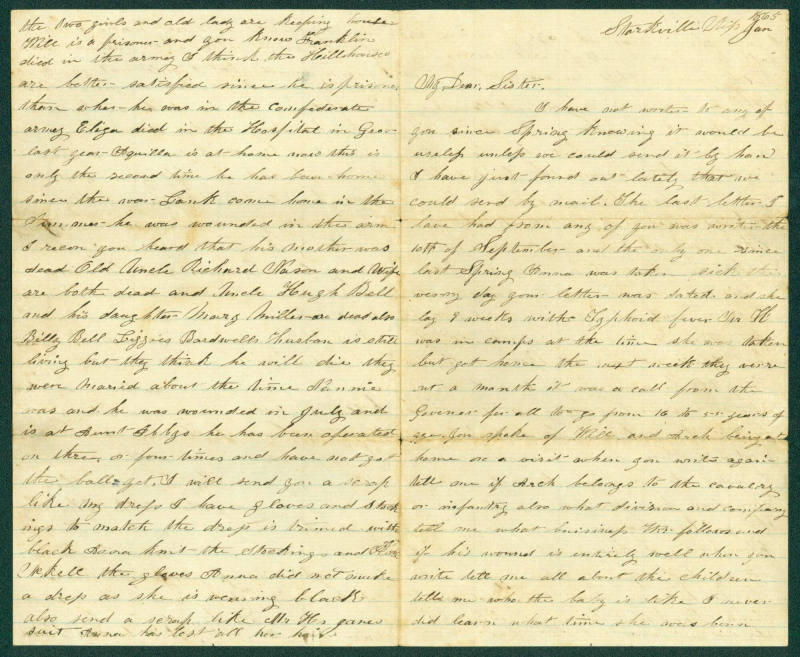 Starkville Miss Jan 1865
My Dear Sister.
I have not writen to any of
you since Spring knowing it would be
useless unless we could send it by hand
I have just found out lately that we
could send by mail. The last letter I
have had from any of you was writen the
10th of September and the only one since
last Spring Anna was taken sick the
verry day your letter was dated and she
lay 8 weeks with Typhoid fever Mr H
was in camps at the time she was taken
but got home the next week they were
out a month it was a call from the
Govenor for all to go from 16 to 55 years of
age. You spoke of Will and Arch being at
home on a visit when you write again
tell me if Arch belongs to the cavalry
or infantry also what division and company
tell me what buisiness Mr follows and
if his wound is entirely well when you
write tell me all about the children
tell me who the baby is like I never
did learn what time she was born
the two girls and old lady are keeping house
Will is a prisoner and you know Franklin
died in the army I think the Hillhouses
are better satisfied since he is prisoner
than when he was in the Confederate
army Eliza died in the Hospital in Geor-
last year Aquilla is at home now this is
only the second time he has been home
since the war Lank come home in the
Summer he was wounded in the arm
I recon you heard that his mother was
dead Old Uncle Richard Nason and Wife
are both dead and Uncle Hugh Bell
and his daughter Mary Miller are dead also
Billy Bell Lizzies Bardwells husban is still
living but they think he will die they
were maried about the time Nannie
was and he was wounded in July and
is at Aunt he has been operated
on three or four times and have not got
the ball yet. I will send you a scrap
like my dress I have gloves and stock
ings to match the dress is trimed with
black knit the Stockings and
the gloves Anna did not make
a dress as she is wearing black
also send a scrap like Mr Hs janes
suit Anna has lost all her hair.